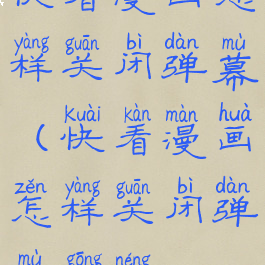 快看漫画怎
yàng guān bì dàn mù
样关闭弹幕
kuài kàn màn huà
(快看漫画
zěn yàng guān bì dàn
怎样关闭弹
mù gōng néng